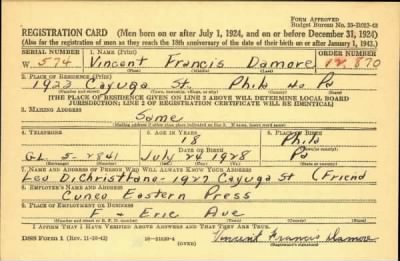 Form Approved
Budget Bureau No. 33-R012-42
REGISTRATION CARD (Men born on or after July 1, 1924, and on or before December 31, 1924)
(Also for the registration of men as they reach the 18th anniversary of the date of their birth on or after January 1, 1943.)
SERIAL NUMBER 1. NAME (Print) ORDER NUMBER
W 574 Vincent Francis Damore 12,870
(First) (Middle) (Last)
2. PLACE OF RESIDENCE (Print)
1922 Cayuga St. Phila Pa
(Number and street) (Town, township, village, or city) (County) (State)
[THE PLACE OF RESIDENCE GIVEN ON LINE 2 ABOVE WILL DETERMINE LOCAL BOARD
JURISDICTION; LINE 2 OF REGISTRATION CERTIFICATE WILL BE IDENTICAL]
3. MAILING ADDRESS
Same
(Mailing address if other than place indicated on line 2. If same, insert word same)
4. TELEPHONE 5. AGE IN YEARS 6. PLACE OF BIRTH
18 Phila
DATE OF BIRTH
GL 5-2841 July 24 1928 Pa
(Exchange) (Number) (Mo.) (Day) (Yr.) (State or country)
7. NAME AND ADDRESS OF PERSON WHO WILL ALWAYS KNOW YOUR ADDRESS
Leo DiChristfano-1927 Cayuga St (Friend
8. EMPLOYER'S NAME AND ADDRESS
Cuneo Eastern Press
9. PLACE OF EMPLOYMENT OR BUSINESS
F + Erie Ave
(Number and street or R. F. D. number) (Town) (County) (State)
I AFFIRM THAT I HAVE VERIFIED ABOVE ANSWERS AND THAT THEY ARE TRUE.
DSS Form 1 (Rev. 11-16-42) (OVER) Vincent Francis Damore
(Registrant's signature)